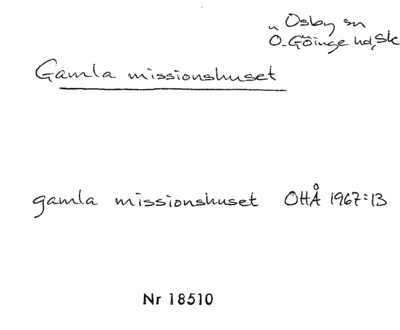 " Osby sn
Ö. Göinge hd, Sk
Gamla missionshuset
gamla missionshuset OHÅ 1967:13
Nr 18510